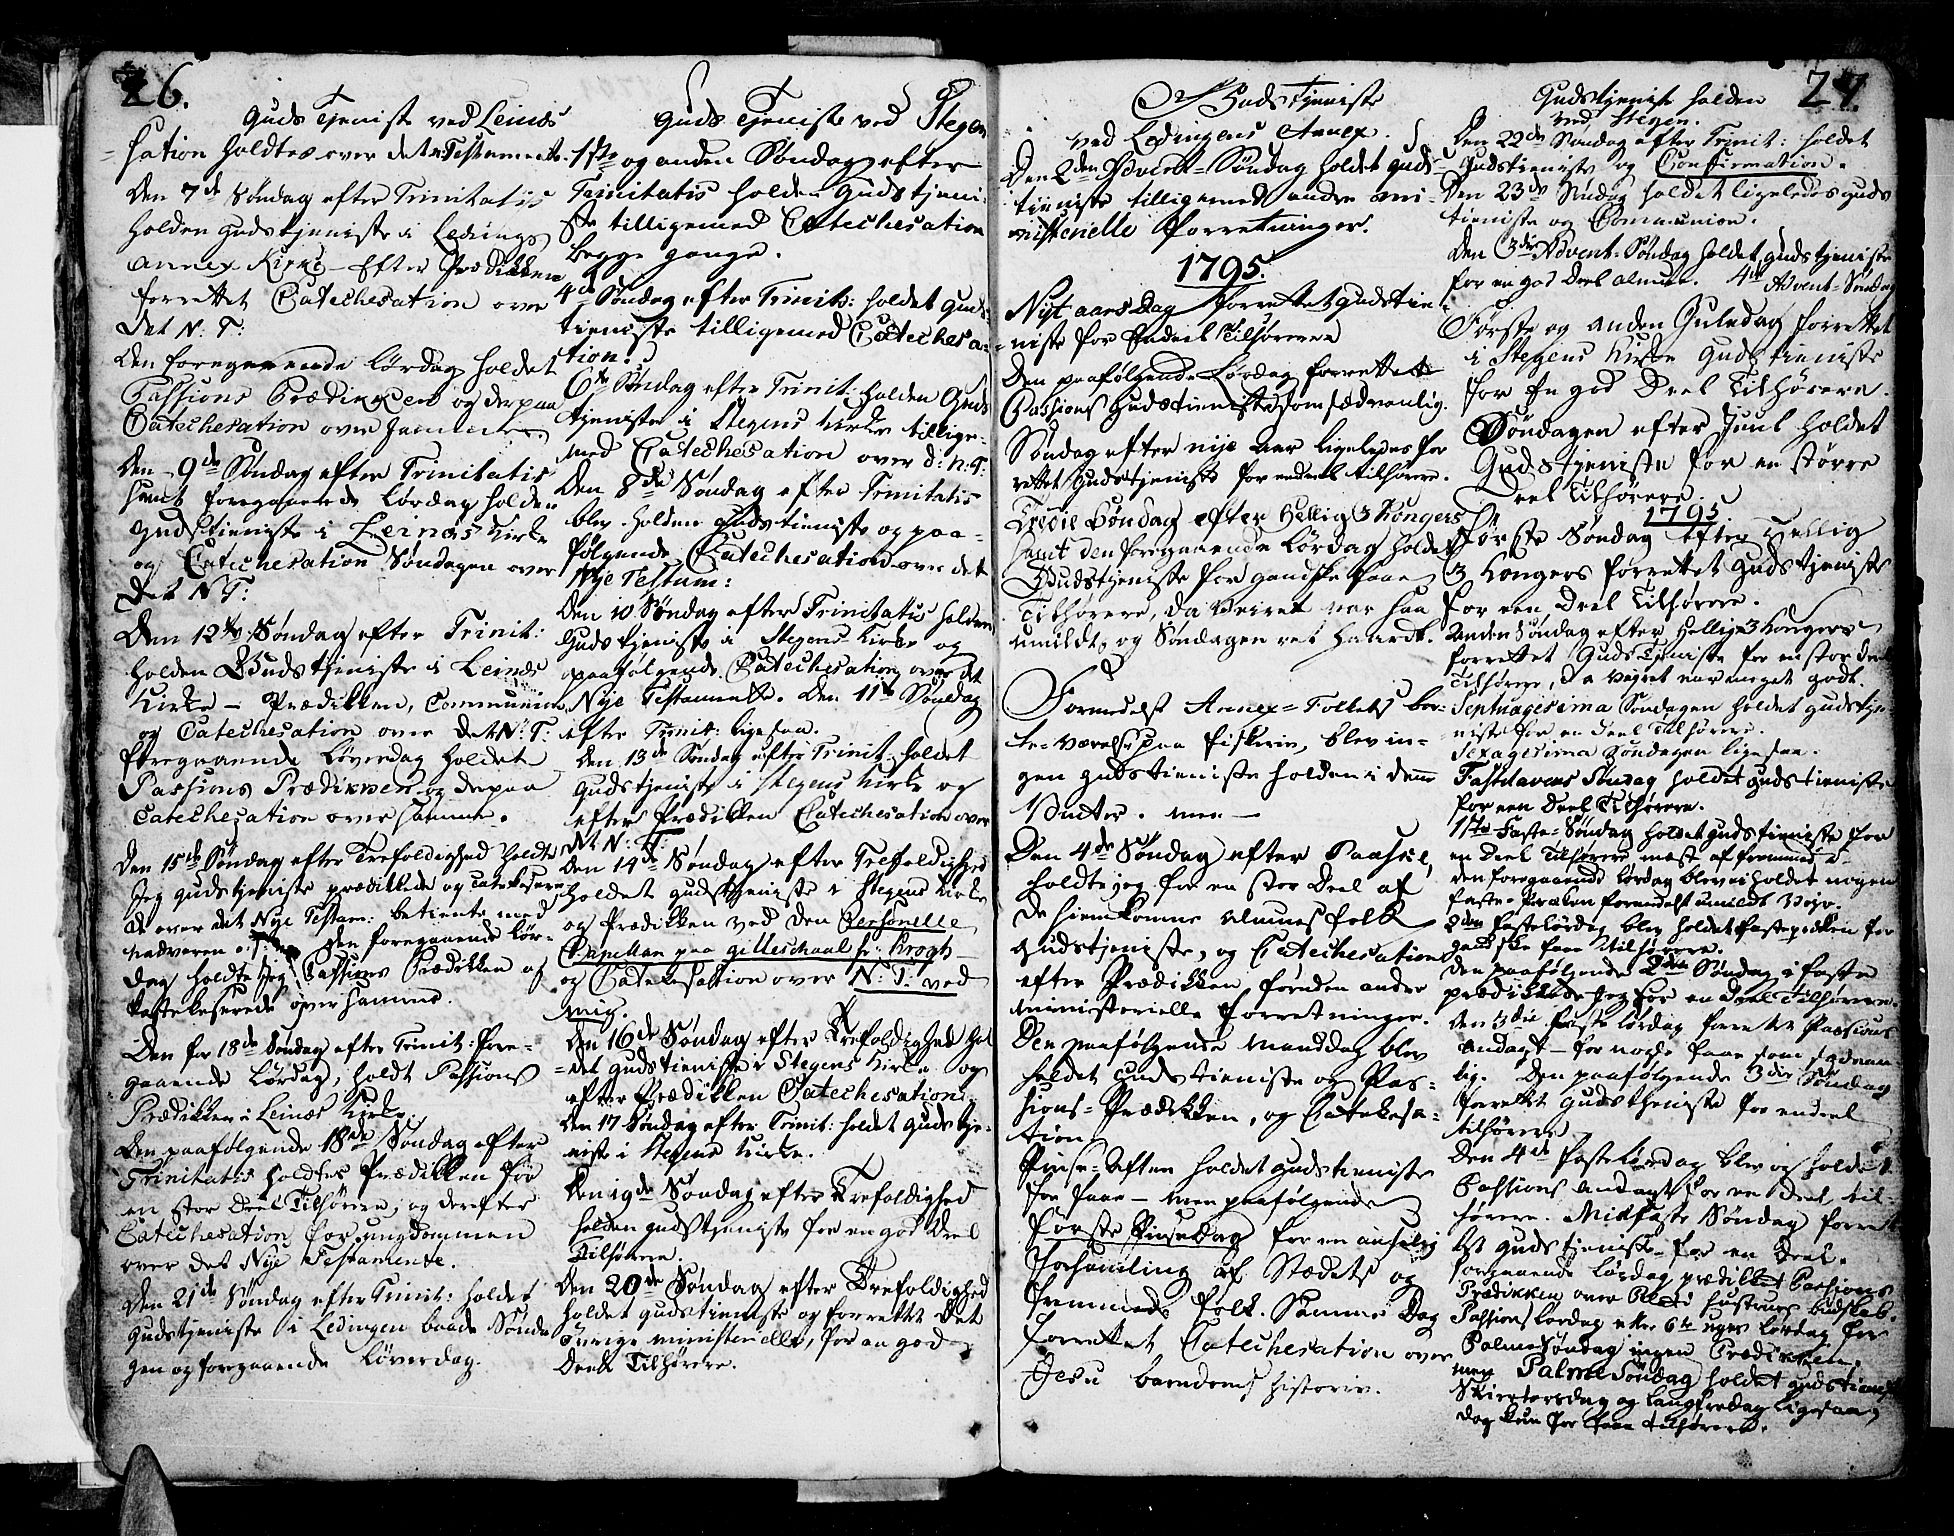 26.
Guds Tjeniste ved Leines
sation holdtes over det n: Testamente.
Den 7de Søndag efter Trinitatis
holden gudstjeniste i Ledings
annex Kirke - Efter Prædikken
forrettet Catechesation over
det N: T:
den foregaaende Lørdag holdet
Passions Prædikken og derpaa
Catechesation over samme.
Den 9de Søndag efter Trinitatis
samt foregaaende Lørdag holden
gudstieniste i Leines Kirke
og Catechesation Søndagen over
det N T:
Den 12te Søndag efter Trinit:
holden Gudsthieniste i Leines
Kirke - Prædikken, Communion
og Catechesation over det N: T:
foregaaende Løverdag holdet
Passions Prædikken og derpaa
Catechesation over samme.
Den 15de Søndag efter Trefoldighed holdte
Jeg gudstjeniste prædikkede og Catekesere
de over det Nye Testam: betiente med
nadveren. den foregaaende Lør-
dag holdte jeg Passions Prædikken og
katekeserede over samme.
Den for 18de Søndag efter Trinit: fore-
gaaende Lørdag, holdt Passions
Prædikken i Leines Kirke.
Den paafølgende 18de Søndag efter
Trinitatis holdtes Prædikken for
en stor Deel Tilhørere, og derefter
Catechesation for ungdommen
over det Nye Testamente.
Den 21de Søndag efter Trinit: holdet
Gudstjeniste i Ledingen baade Sønda
gen og foregaaende Løverdag.
Guds Tjeniste ved Stegen
1ste og anden Søndag efter
Trinitatis holden Gudstjeni-
ste tilligemed Catechesation
begge gange.
4de Søndag efter Trinit: holdet Guds
tieniste tilligemed Catechesa-
tion.
6te Søndag efter Trinit: holden Guds
tjeniste i Stegens Kirke tillige-
med Catechesation over d: N: T:
Den 8de Søndag efter Trinitatis
blev holden gudstieniste og paa-
følgende Catechesation over det
Nye Testam:
Den 10 Søndag efter Trinitatis holden
Gudstjeniste i Stegens Kirke og
paafølgende Catechesation over det
Nye Testamente. Den 11te Søndag
efter Trinit: ligesaa.
Den 13de Søndag efter Trinit: holdet
Gudstjeniste i Stegens Kirke og
efter Prædikken Catechesation over
det N: T:
Den 14de Søndag efter Trefoldighed
holdet gudstjeniste i Stegens Kirke
og Prædikken ved den Personelle
Capellan paa Gilleschaal hr: Krogh
og Catekesation over N: T: ved
mig.
Den 16de Søndag efter Trefoldighed hol
det gudstieniste i Stegens Kirke og
efter Prædikken Catechesation.
Den 17 Søndag efter Trinit: holdet gudstje-
niste i Stegens Kirke.
Den 19de Søndag efter Trefoldighed
holden gudstjeniste for en god Deel
Tilhørere.
Den 20de Søndag efter Trefoldighed
holdet gudstieniste og forrettet det
øvrige ministerielle, for en god
Deel Tilhørere.
Gudstjeniste
ved Ledingens Annex.
Den 2den Advent-Søndag holdet guds-
tieniste tilligemed andre mi-
nisterielle forretninger.
1795.
Nyt aars Dag forrettet gudstie-
niste for Endeel Tilhørere
den paafølgende Lørdag forrettet
Passions Gudstieniste som sædvanlig.
Søndag efter nye Aar ligeledes for
rettet Gudstjeniste for endeel tilhørere.
Tredie Søndag efter Hellig 3 Kongers
samt den foregaaende Lørdag holdet
Gudstjeniste for gandske faae
Tilhørere, da veiret var saa
umildt, og Søndagen ret haardt.
Formedelst Annex-Folkets bor-
te-værelse paa fiskerie, blev in-
gen gudstieniste holden i denne
Vinter. men -
Den 4de Søndag efter Paaske,
holdte jeg for en stor Deel af
de hiemkomne almues folk
gudstjeniste, og Catechesation
efter Prædikken foruden andre
ministerielle forretninger.
Den paafølgende Mandag blev
holdet gudstieniste og Pas-
sions-Prædikken, og Catekesa-
tion
Pinse-Aften holdet gudstieniste
for faae - men paafølgende
første Pinsedag for en anselig
Forsamling af Stædets og
fremmede folk. Samme Dag
forrettet Catechesation over
Jesu barndoms historie.
27.
Gudstjeniste holden
ved Stegen.
Den 22de Søndag efter Trinit: holdet
Gudstieniste og Confirmation.
Den 23de Søndag holdet ligeledes guds
tieniste og Communion.
Den 3die Advent-Søndag holdet gudstjeniste
for en god Deel almue. 4de Advent-Søndag
Første og anden Juledag forrettet
i Stegens Kirke Gudstieniste
for En god Deel Tilhørere.
Søndagen efter Juul holdet
Gudstjeniste for en større
Deel Tilhørere.
1795
Første Søndag efter Hellig
3 Kongers forrettet Gudstjeniste
for een Deel Tilhørere.
Anden Søndag efter Hellig 3 Kongers
forrettet Guds Tjeniste for en stor deel
Tilhørere, da veyret var meget godt.
Septuagesima Søndagen holdet gudstje-
niste for en Deel Tilhørere.
Sexagesima Søndagen ligesaa.
Fastelavens Søndag holdet gudstieniste
for een Deel Tilhørere.
1ste Faste-Søndag holdet gudstieniste for
en Deel Tilhørere mest af fremmede -
den foregaaende Lørdag blev ei holdet nogen
faste-Præken formedelst umildt Veyr.
2den fastelørdag blev holdet fasteprækken for
gandske faae Tilhørere.
Den paafølgende 2den Søndag i faste
prædikkede Jeg for en Deel Tilhørere.
Den 3die faste lørdag forrettet Passions
Andagt - for nogle faae som sædvan
lig. Den paafølgende 3die Søndag
forrettet gudsthieniste for endeel
tilhørere
Den 4de faste Lørdag blev og holdet
Passions Andagt for en Deel, til-
hørere. Midfaste Søndag forret
tet gudstjeniste for en Deel.
forgaaende Lørdag prædiket Passions
Prædikken over Pilati hustrues budskab.
Passions lørdag eller 6te uges lørdag for
Palmesøndag ingen Prædikken.
men Palmesøndag holdet gudstieniste
Skiertorsdag og langfredag ligesaa,
dog kun for faae tilhørere.